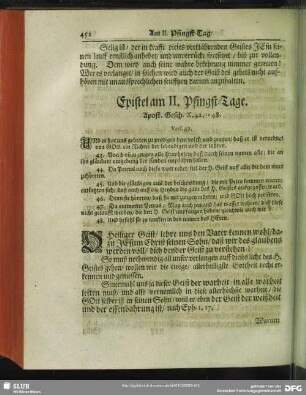 452 Am II. Pfingst-Tag.
Selig ist / der in krafft dieses verklährenden Geistes JEsu sei-
nen lauff ernstlich anhebet und unverrückt fortsetzet / biß zur vollen-
dung. Dem wird auch seine wahre bekehrung nimmer gereuen!
Wer es verlanget / in solchen wird auch der Geist
mit unaussprechlichen seuffzen darum anzuhalten.
Epistel am II. Pfingst-Tage.
Apost. Gesch. X. 42. - 48.
Vers. 42.
Und er hat uns geboten zu predigen dem volck und zeugen / daß er ist verordnet
von GOtt ein Richter der lebendigen und der todten.
43. Von diesem zeugen alle Propheten / daß durch seinen namen alle / die an
ihn gläuben / vergebung der sünden empfahen sollen.
44. Da Petrus noch diese wort redet / fiel der H. Geist auf alle / die dem wort
zuhöreten.
45. Und die gläubigen aus der beschneidung / die mit Petro kommen waren /
entsatzten sich / daß auch auf die Heyden die gabe des H. Geistes ausgegossen ward.
46. Denn sie höreten / daß sie mit zungen redeten / und GOtt hoch preiseten.
47. Da antwortet Petrus: Mag auch jemand das wasser wehren / daß diese
nicht getaufft werden / die den H. Geist empfangen haben / gleichwie auch wir?
48. Und befahl sie zu tauffen in dem namen des HErrn.
O Heiliger Geist / lehre uns den Vater kennen wohl / da-
zu JEsum Christ seinen Sohn / daß wir des glaubens
werden voll / dich beyder Geist zu verstehen!
So muß nothwendig all unser verlangen auf dieses licht des H.
Geistes gehen / wollen wir die einige / allerheiligste Gottheit recht er-
kennen und geniessen.
Sintemahl uns ja dieser Geist der warheit in alle warheit
leiten muß / und also vornemlich in diese allerhöchste warheit / die
GOtt selber ist in seinem Sohn / weil er eben der Geist der weißheit
und der offenbahrung ist / nach Eph. 1, 17.
Warum
SLUB
Wir führen Wissen.